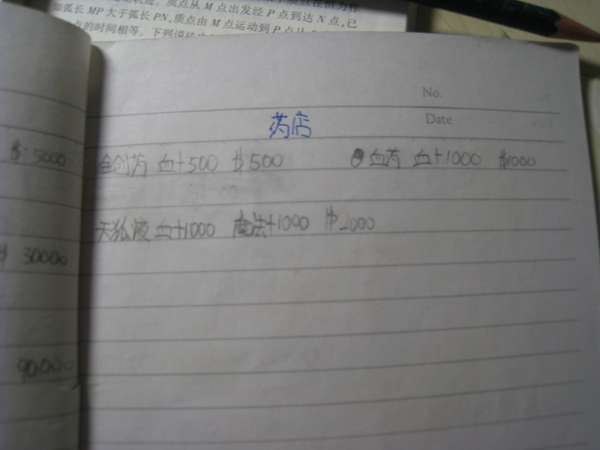 质点从M点出发经P点到达N点,已
弧长MP大于弧长PN,质点由M点运动到P点
点的时间相等。下列说法
No.
Date
药店
$:5000 金创药 血+500 $500 血药 血+1000 $1000
天狐液 血+1000 魔法+1000 $2000
$ 30000
90000